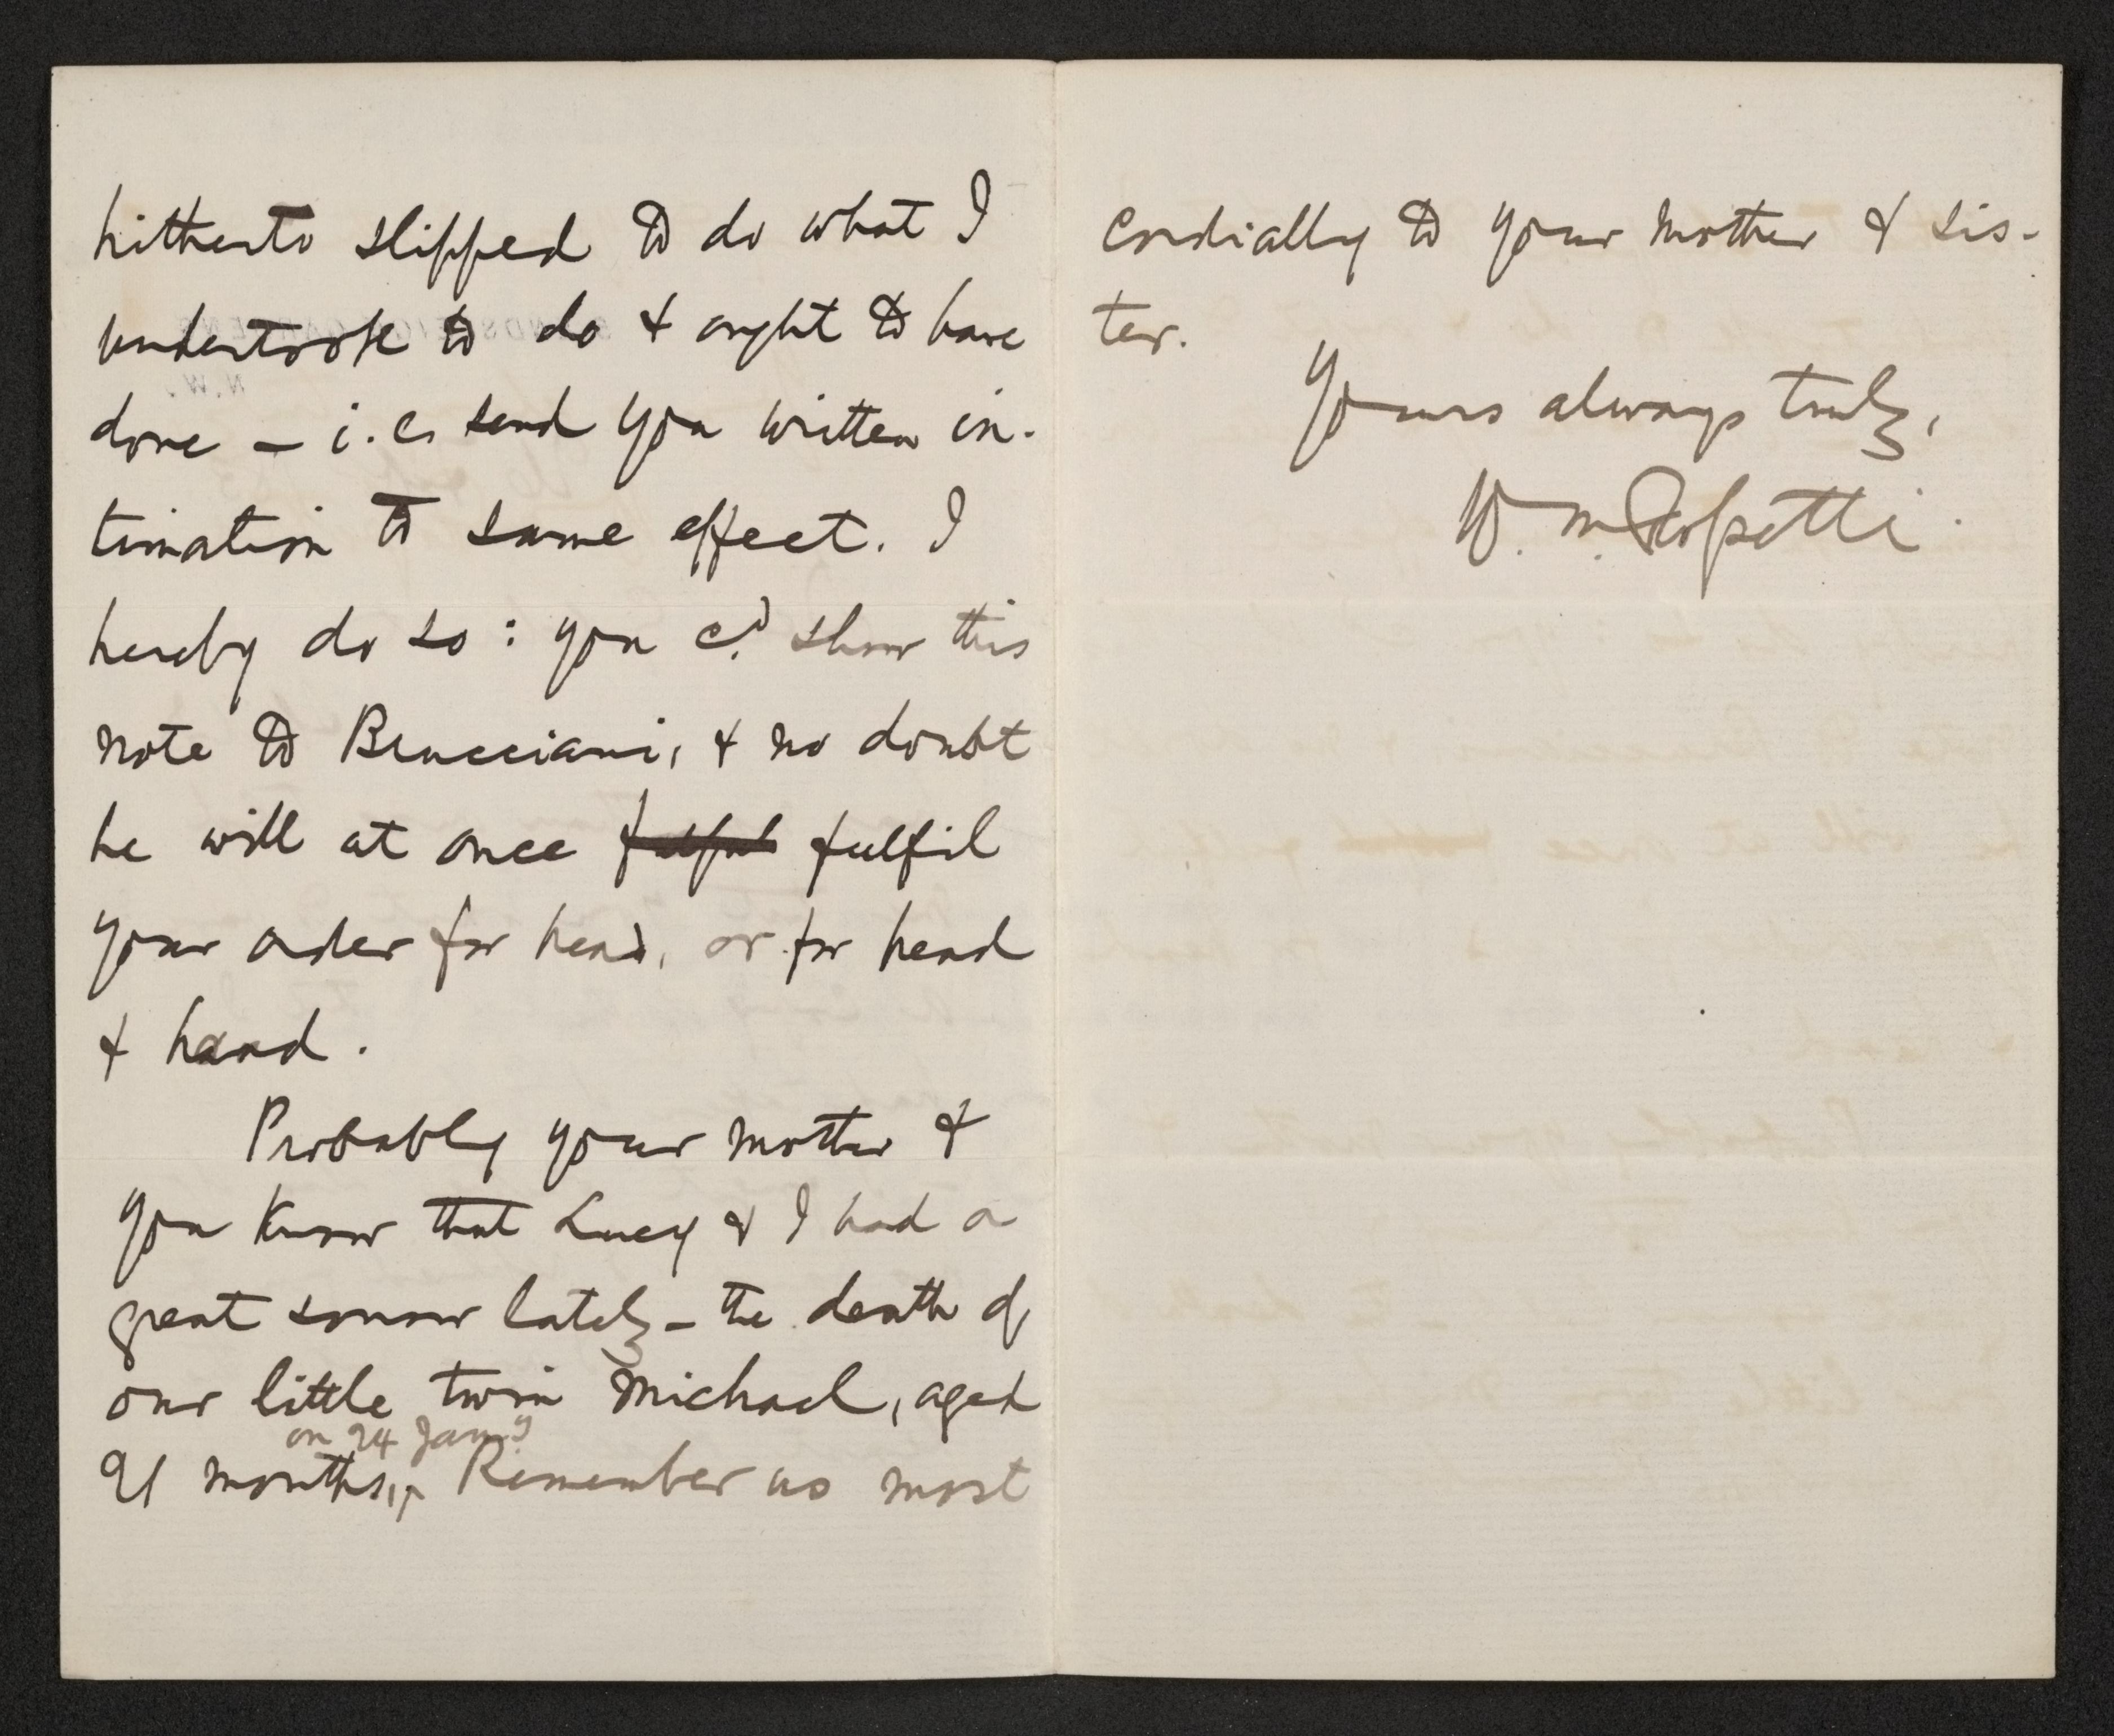 hitherto slipped to do what I
undertook to do & ought to have
done – i.e. send you written in-
timation to same effect. I
hereby do so : you cd. show this
note to Brucciani, & no doubt
he will at once fulful fulfil
your order for head, or for head
& hand.
Probably your mother &
you know that Lucy & I had a
great sorrow lately – the death of
our little twin Michael, aged
on 24 Jany
21 months,. Remember us most
cordially to your mother & sis-
ter.
Yours always truly,
W. M. Rossetti.